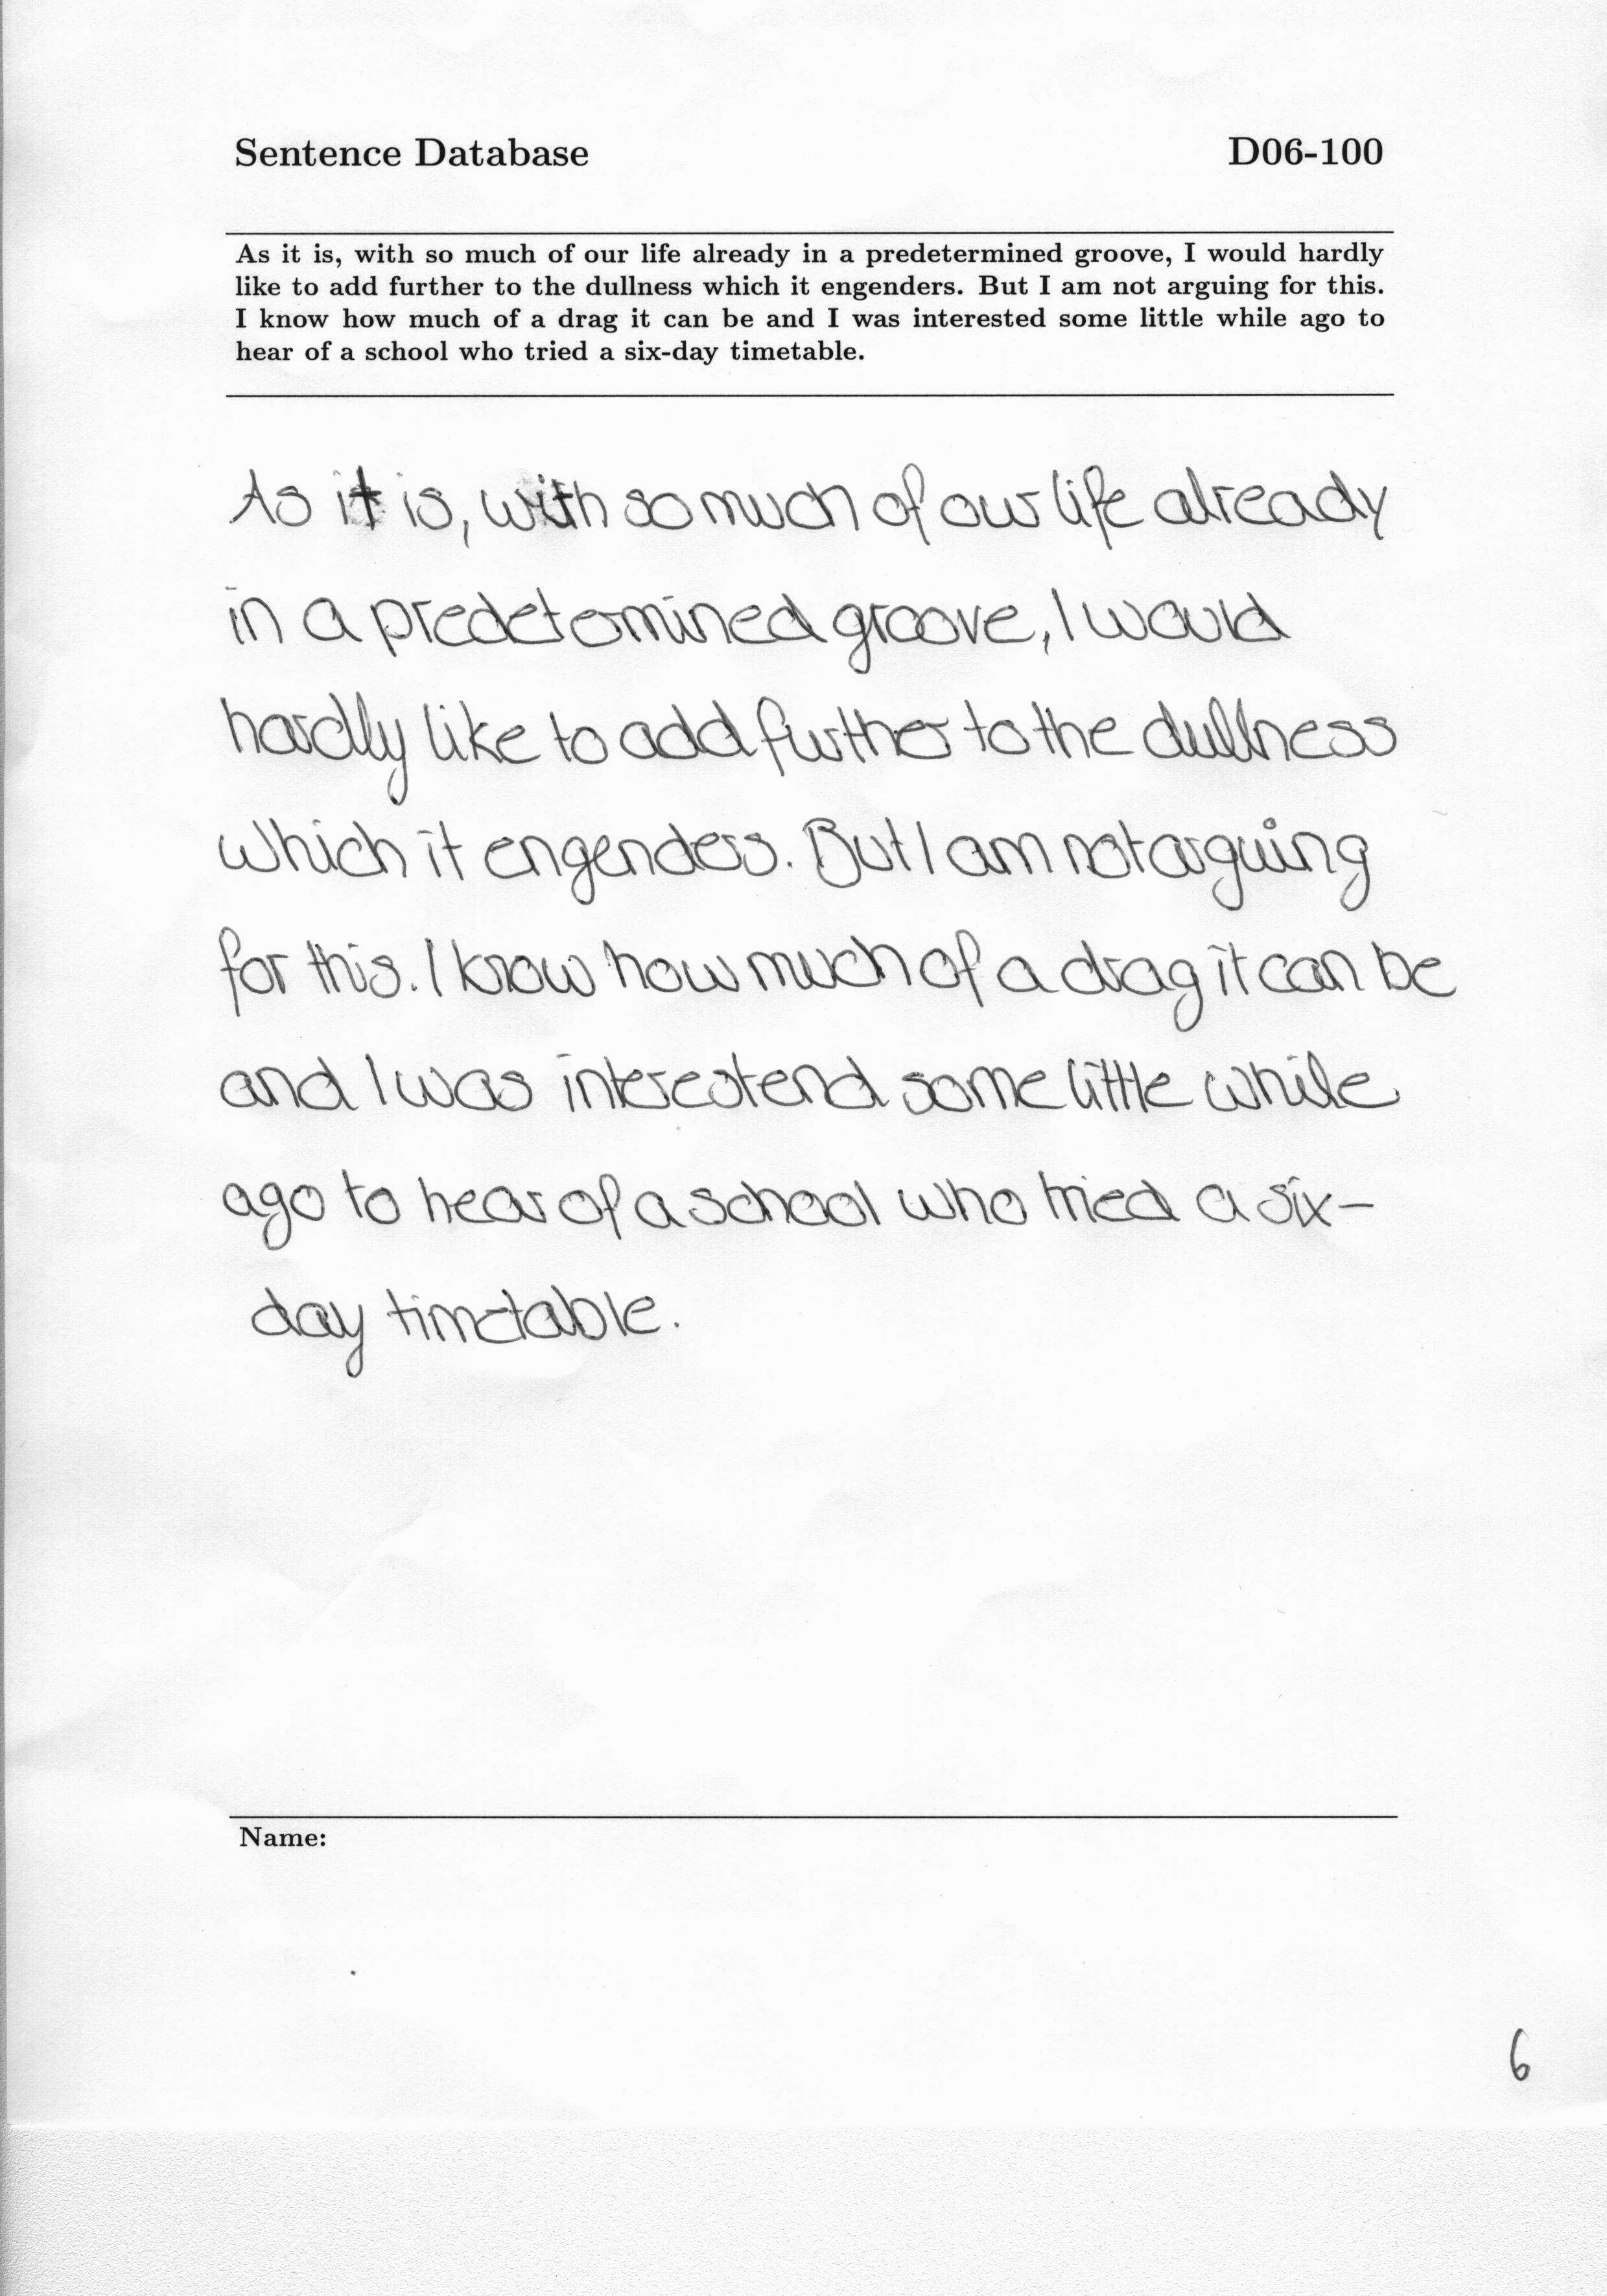 Sentence Database D06-100
As it is, with so much of our life already in a predetermined groove, I would hardly
like to add further to the dullness which it engenders. But I am not arguing for this.
I know how much of a drag it can be and I was interested some little while ago to
hear of a school who tried a six-day timetable.
As it is, with so much of our life already
in a predetermined groove, I would
hardly like to add further to the dullness
which it engenders. But I am not arguing
for this. I know how much of a drag it can be
and I was interestend some little while
ago to hear of a school who tried a six-
day timetable.
Name:
6